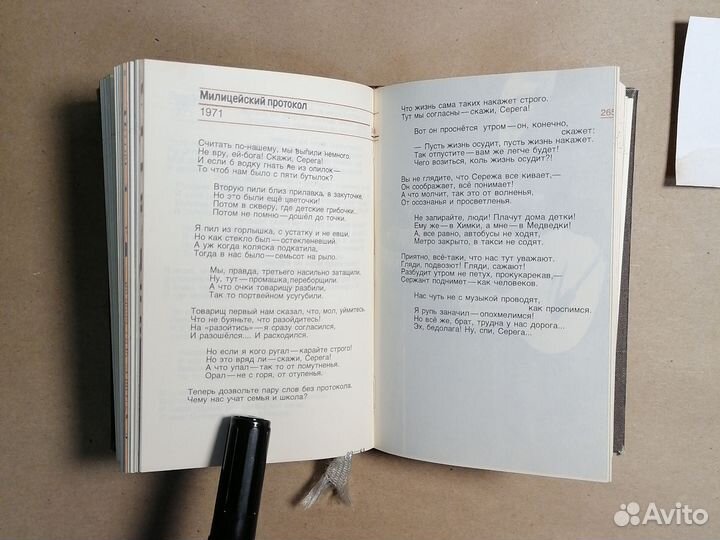 Милицейский протокол
1971
Считать по-нашему, мы выпили немного.
Не вру, ей-бога! Скажи, Серега!
И если б водку гнать не из опилок—
То чтоб нам было с пяти бутылок?
Вторую пили близ прилавка, в закуточке,
Но это были ещё цветочки!
Потом в скверу, где детские грибочки.
Потом не помню—дошёл до точки.
Я пил из горлышка, с устатку и не евши,
Но как стекло был—остекленевший.
А уж когда коляска подкатила,
Тогда в нас было—семьсот на рыло.
Мы, правда, третьего насильно затащили,
Ну, тут—промашка,переборщили.
А что очки товарищу разбили,
Так то портвейном усугубили.
Товарищ первый нам сказал, что, мол, уймитесь,
Что не буяньте, что разойдитесь!
На «разойтись»—я сразу согласился,
И разошёлся.... И расходился.
Но если я кого ругал—карайте строго!
Но это вряд ли—скажи, Серега!
А что упал—так то от помутненья.
Орал—не с горя, от отупенья.
Теперь дозвольте пару слов без протокола.
Чему нас учат семья и школа?
265
Что жизнь сама таких накажет строго.
Тут мы согласны—скажи, Серега!
Вот он проснётся утром—он, конечно,
скажет:
— Пусть жизнь осудит, пусть жизнь накажет.
Так отпустите—вам же легче будет!
Чего возиться, коль жизнь осудит?!
Вы не глядите, что Сережа все кивает,—
Он соображает, всё понимает!
А что молчит, так это от волненья,
От осознанья и просветленья.
Не запирайте, люди! Плачут дома детки!
Ему же—в Химки, а мне—в Медведки!
А, все равно, автобусы не ходят,
Метро закрыто, в такси не содят.
Приятно, всё-таки, что нас тут уважают.
Гляди, подвозют! Гляди, сажают!
Разбудит утром не петух, прокукарекав,—
Сержант поднимет—как человеков.
Нас чуть не с музыкой проводят,
как проспимся.
Я рупь заначил—опохмелимся!
Но всё же, брат, трудна у нас дорога...
Эх, бедолага! Ну, спи, Серега...
Avito